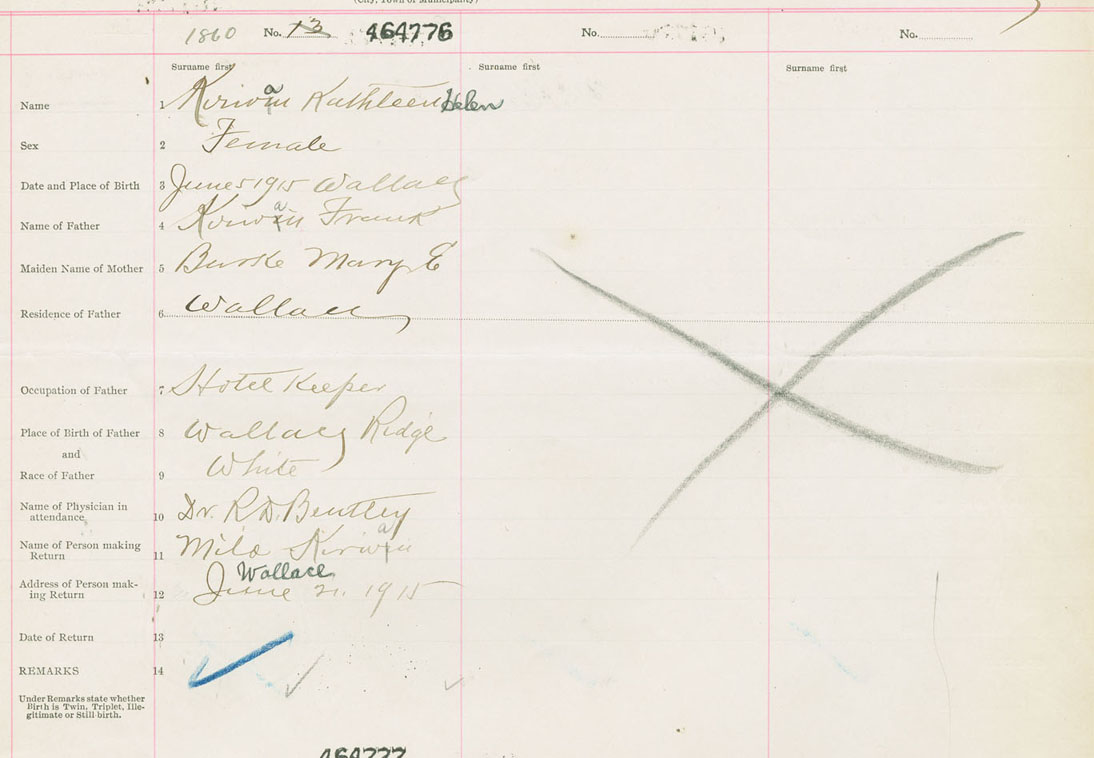 (City, Town or Municipality)
1860 No. 13 464776 No. No.
Surname first Surname first Surname first
Name 1 Kirwan Kathleen Helen
Sex 2 Female
Date and Place of Birth 3 June 5 1915 Wallace
Name of Father 4 Kirwan Frank
Maiden Name of Mother 5 Burke Mary E
Residence of Father 6 Wallace
Occupation of Father 7 Hotel Keeper
Place of Birth of Father 8 Wallace Ridge
and
Race of Father 9 White
Name of Physician in
attendance 10 Dr. R D. Bentley
Name of Person making
Return 11 Kirwan
Wallace
Address of Person mak-
ing Return 12 June 21. 1915
Date of Return 13
REMARKS 14
Under Remarks state whether
Birth is Twin, Triplet, Ille-
gitimate or Still birth.
464777